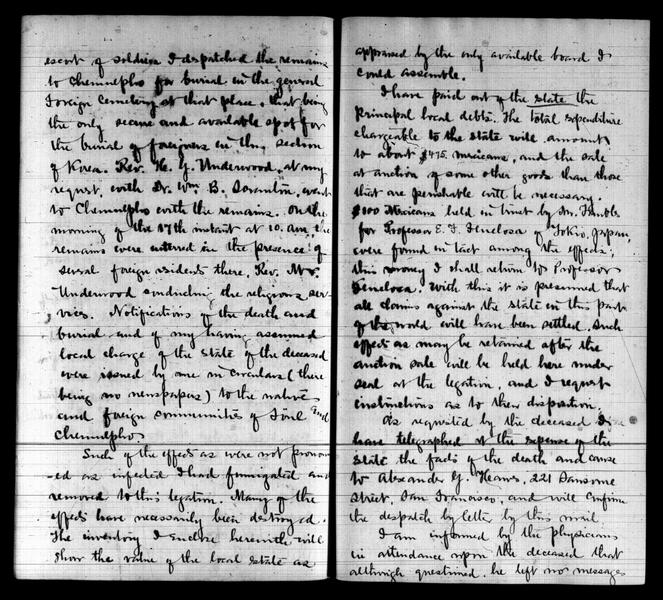 escort of soldiers I despatched the remains
to Chemulpho for burial in the general
Foreign Cemetery at that place, that being
the only secure and available spot for
the burial of foreigners in this section
of Korea. Rev. H. G. Underwood, at my
request, with Dr. Wm B. Scranton, went
to Chemulpho with the remains. On the
morning of the 17th instant at 10. am, the
remains were interred in the presence of
several foreign residents there, Rev. Mr.
Underwood conducting the religious ser-
vices. Notifications of the death and
burial and of my having assumed
local charge of the estate of the deceased
were issued by me in circulars (there
being no newspapers) to the native
and foreign communities of Söul and
Chemulpho
Such of the effects as were not pronounc
-ed as infected I had fumigated and
removed to this legation. Many of the
effects have necessarily been destroyed.
The inventory I enclose herewith will
show the value of the local estate as
appraised by the only available board I
could assemble.
I have paid out of the estate the
principal local debts. The total expenditure
chargeable to the estate will amount
to about $475. mexicans, and the sale
at auction of some other goods than those
that are perishable will be necessary.
$100 Mexicans held in trust by Mr.
for Professor E. F. Fenelosa of Tokio, Japan,
were found intact among the effects;
this money I shall return to Professor
Fenelosa. With this it is presumed that
all claims against the estate in this part
of the world will have been settled. Such
effects as may be retained after the
auction sale will be held here under
seal at the legation, and I request
instructions as to their disposition.
As requested by the deceased I
have telegraphed at the expense of the
estate the facts of the death and cause
to Alexander G. Hawes, 221 Sansome
Street, San Francisco, and will confirm
the despatch by letter by this mail
I am informed by the physicians
in attendance upon the deceased that
although questioned, he left no messages